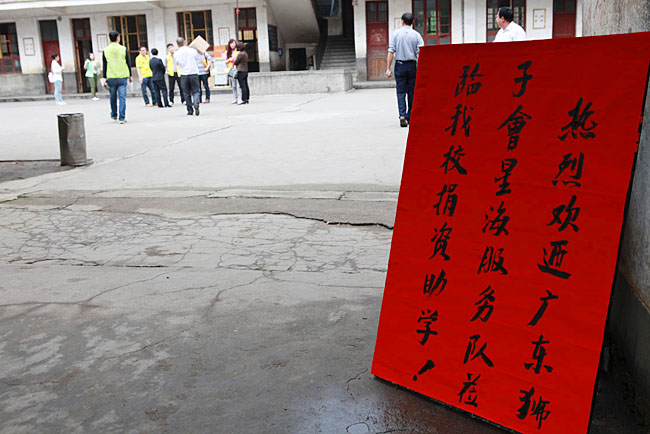 热烈欢迎广东狮
子會星海服务队莅
临我校捐资助学！